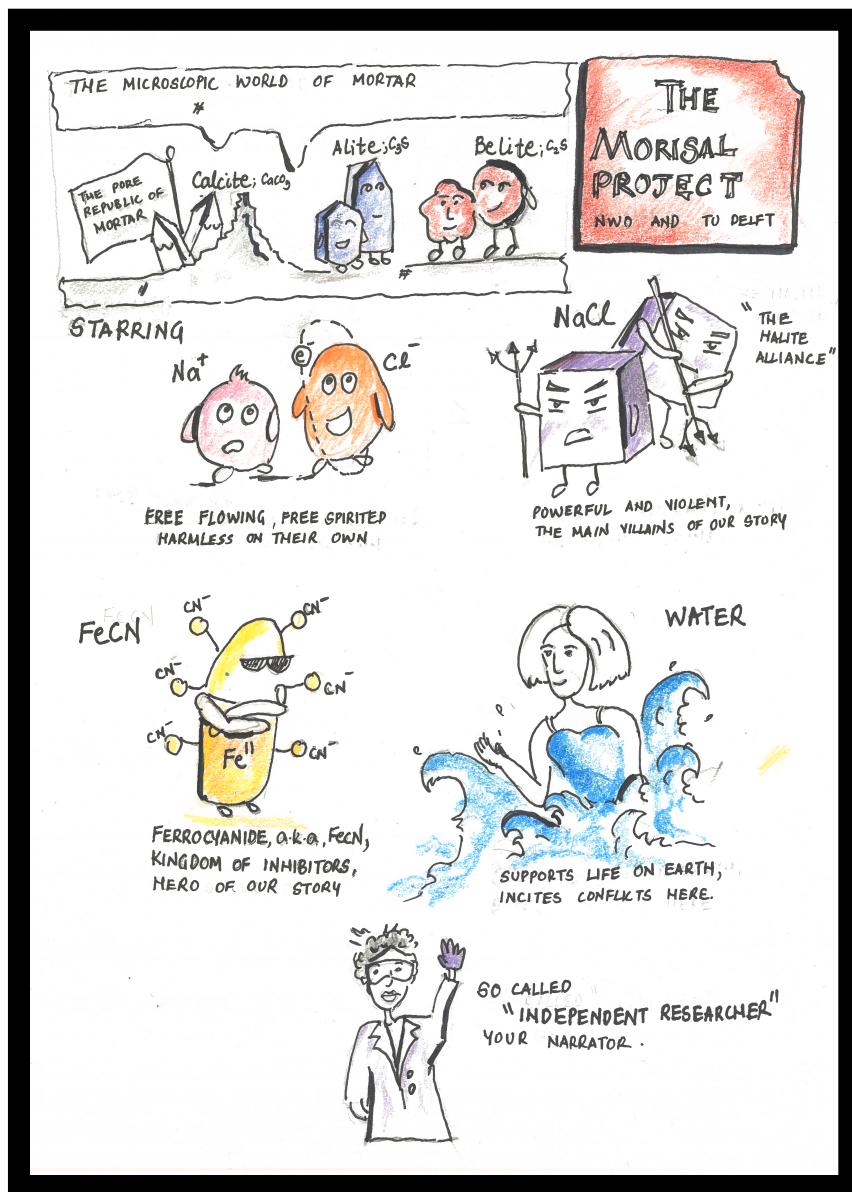 THE MICROSCOPIC WORLD OF MORTAR
THE PORE
REPUBLIC OF
MORTAR
Calcite; CaCO3
Alite; C3S
Belite; C2S
THE
MORISAL
PROJECT
NWO AND TU DELFT
STARRING
Na+
e-
Cl-
FREE FLOWING, FREE SPIRITED
HARMLESS ON THEIR OWN
NaCl
"THE
HALITE
ALLIANCE"
POWERFUL AND VIOLENT,
THE MAIN VILLAINS OF OUR STORY
FeCN
CN-
CN-
CN-
CN-
CN-
CN-
Fe II
FERROCYANIDE, a.k.a, FeCN,
KINGDOM OF INHIBITORS,
HERO OF OUR STORY
WATER
SUPPORTS LIFE ON EARTH,
INCITES CONFLICTS HERE.
SO CALLED
"INDEPENDENT RESEARCHER"
YOUR NARRATOR.